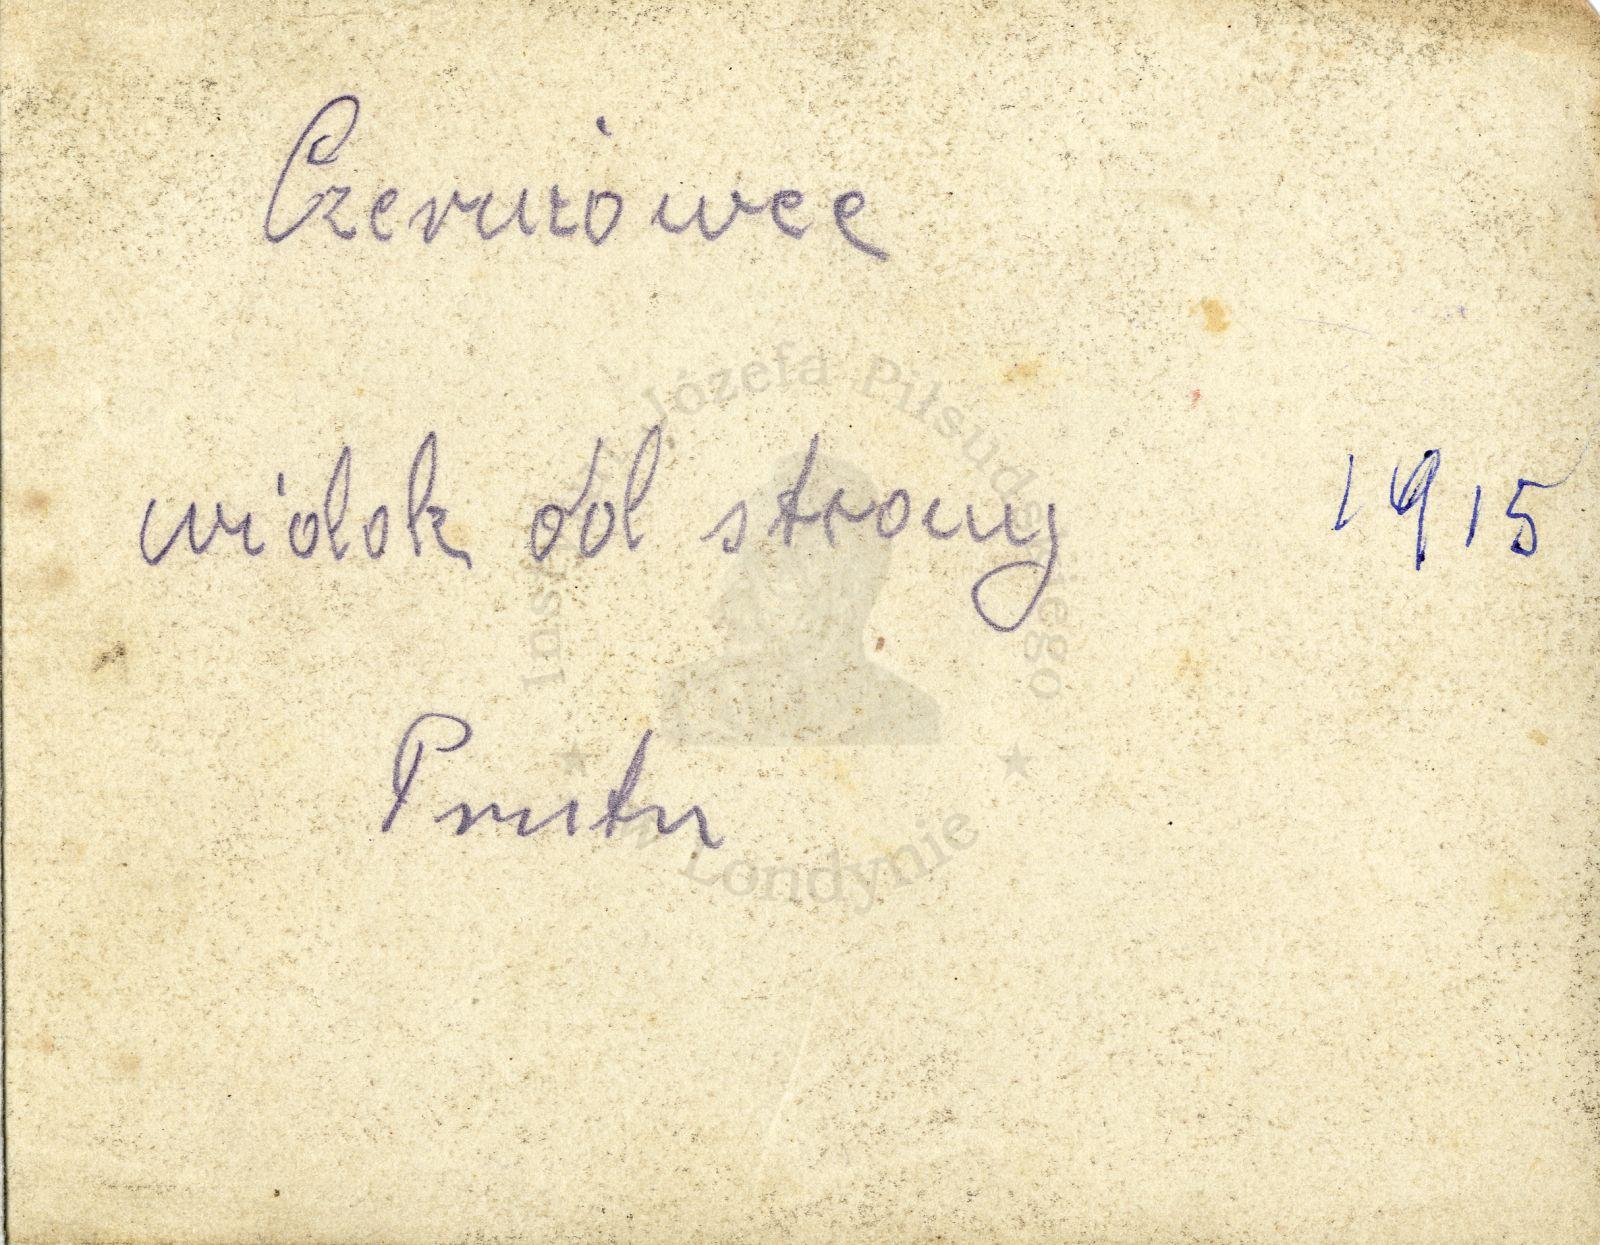 Czerniowce
widok od strony
1915
Prutu
Instytut Józefa Piłsudskiego
w Londynie